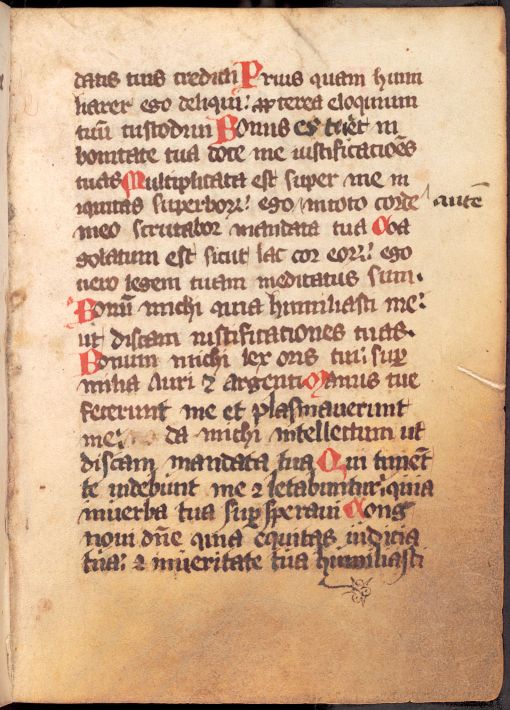 datis tuis credidi Prius quam humi
liarer ego deliqui: ꝓpterea eloquium
tuū custodiui Bonus es tu et in
bonitate tua doce me iustificatioēs
tuas Multiplicata est super me in
iquitas superbor: ego in toto corde autē
meo scrutabor mandata tua Coa
golatum est sicut lac cor eor: ego
uero legem tuam meditatus sum.
Bonū michi quia humiliasti me:
ut discam iustificationes tuas.
Bonum michi lex oris tui: suꝑ
milia auri ⁊ argenti Manus tue
fecerunt me et plasmauerunt
me: da michi intellectum ut
discam mandata tua Qui timēt
te uidebunt me ⁊ letabuntur: quia
in uerba tua suꝑ speraui Cong
noui dn̄e quia equitas iudicia
tua: ⁊ in ueritate tua humiliasti